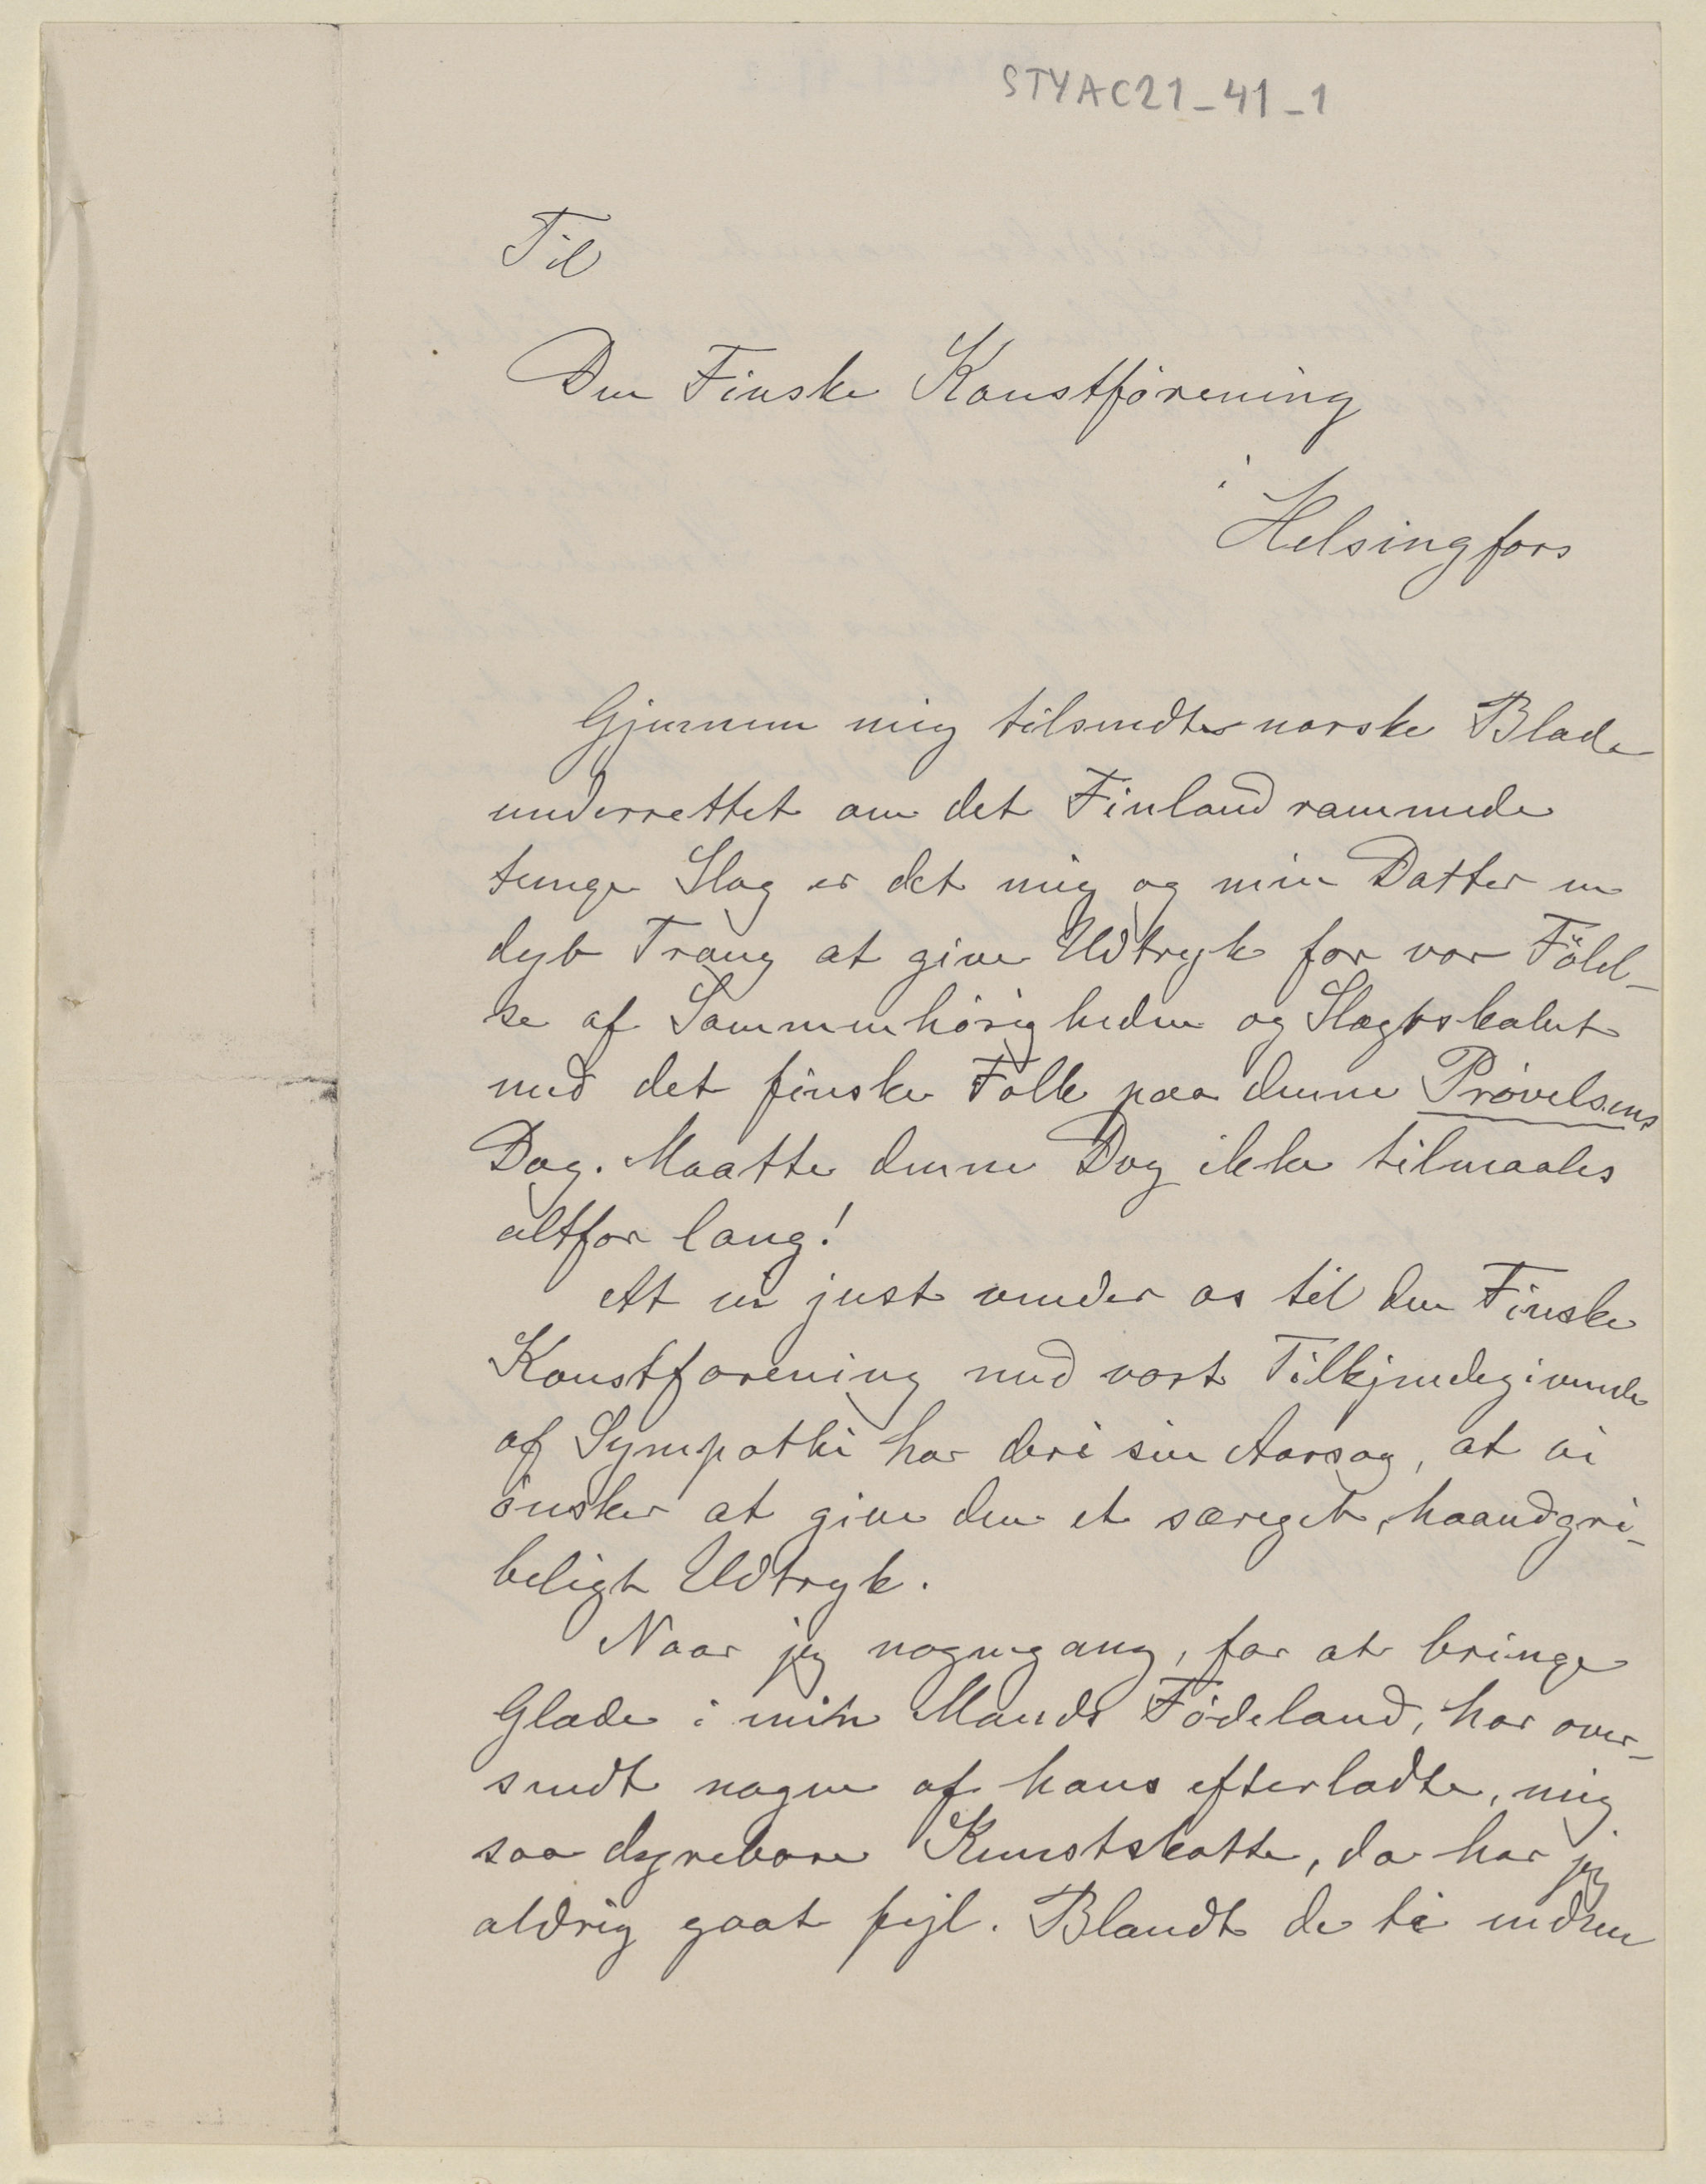 STYAC21_41_1
Til
Den Finske Konstförening
i
Helsingfors
Gjennem mig tilsendte norske Blade
underrettet om det Finland rammede
tunge Slag er det mig og min Datter en
dyb Trang at give Udtryk for vor Fölel-
se af Sammenhörigheden og Slægtskabet
med det finske Folk paa denne Prövelsens
Dag. Maatte denne Dag ikke tilmaales
altfor lang!
At vi just vender os til den Finske
Konstforening med vort Tilkjendegivende
af Sympathi har deri sin Aarsag, at vi
önsker at give den et særeget, haandgri-
beligt Udtryk.
Naar jeg nogengang, for at bringe
Glæde i min Mands Födeland, har over-
sendt nogen af hans efterladte, mig
saa dyrebare Kunstskatte, da har jeg
aldrig gaat fejl. Blandt de til